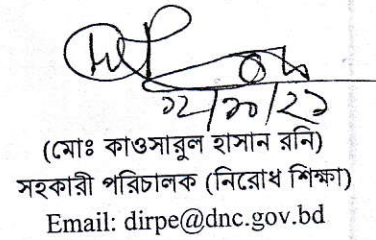 ১২/১০/২১
(মোঃ কাওসারুল হাসান রনি)
সহকারী পরিচালক (নিরোধ শিক্ষা)
Email: dirpe@dnc.gov.bd